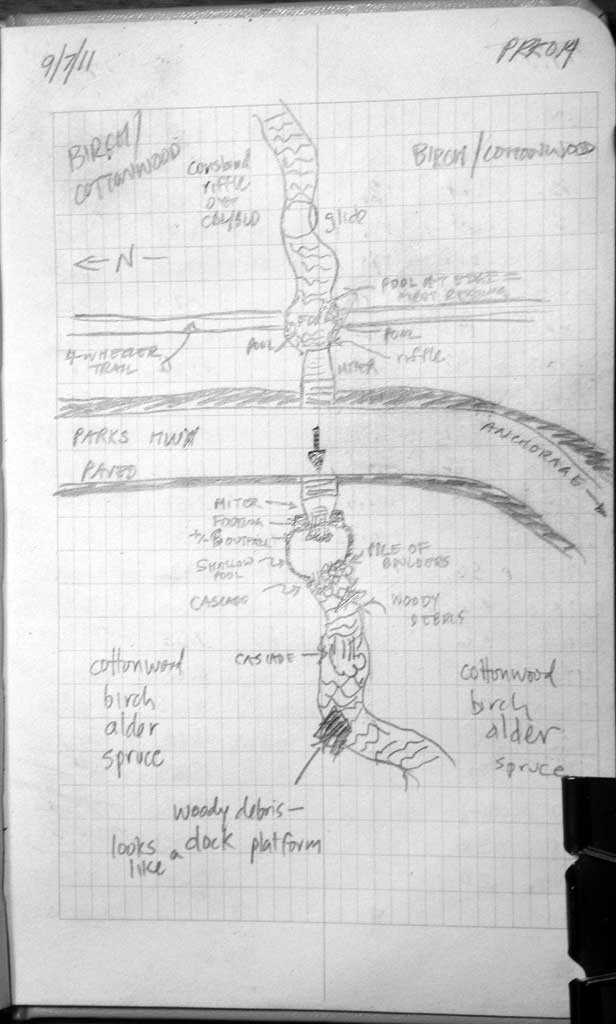 9/7/11
BIRCH/
COTTONWOOD
BIRCH/COTTONWOOD
riffle
over
glide
← N —
POOL AT EDGE =
4-WHEELER
TRAIL
POOL
POOL
riffle
MITER
PARKS HWY
PAVED
ANCHORAGE →
MITER
SHALLOW
POOL
PILE OF
BOULDERS
CASCADE
WOODY
DEBRIS
CASCADE
cottonwood
birch
alder
spruce
cottonwood
birch
alder
spruce
woody debris—
looks a dock platform
like